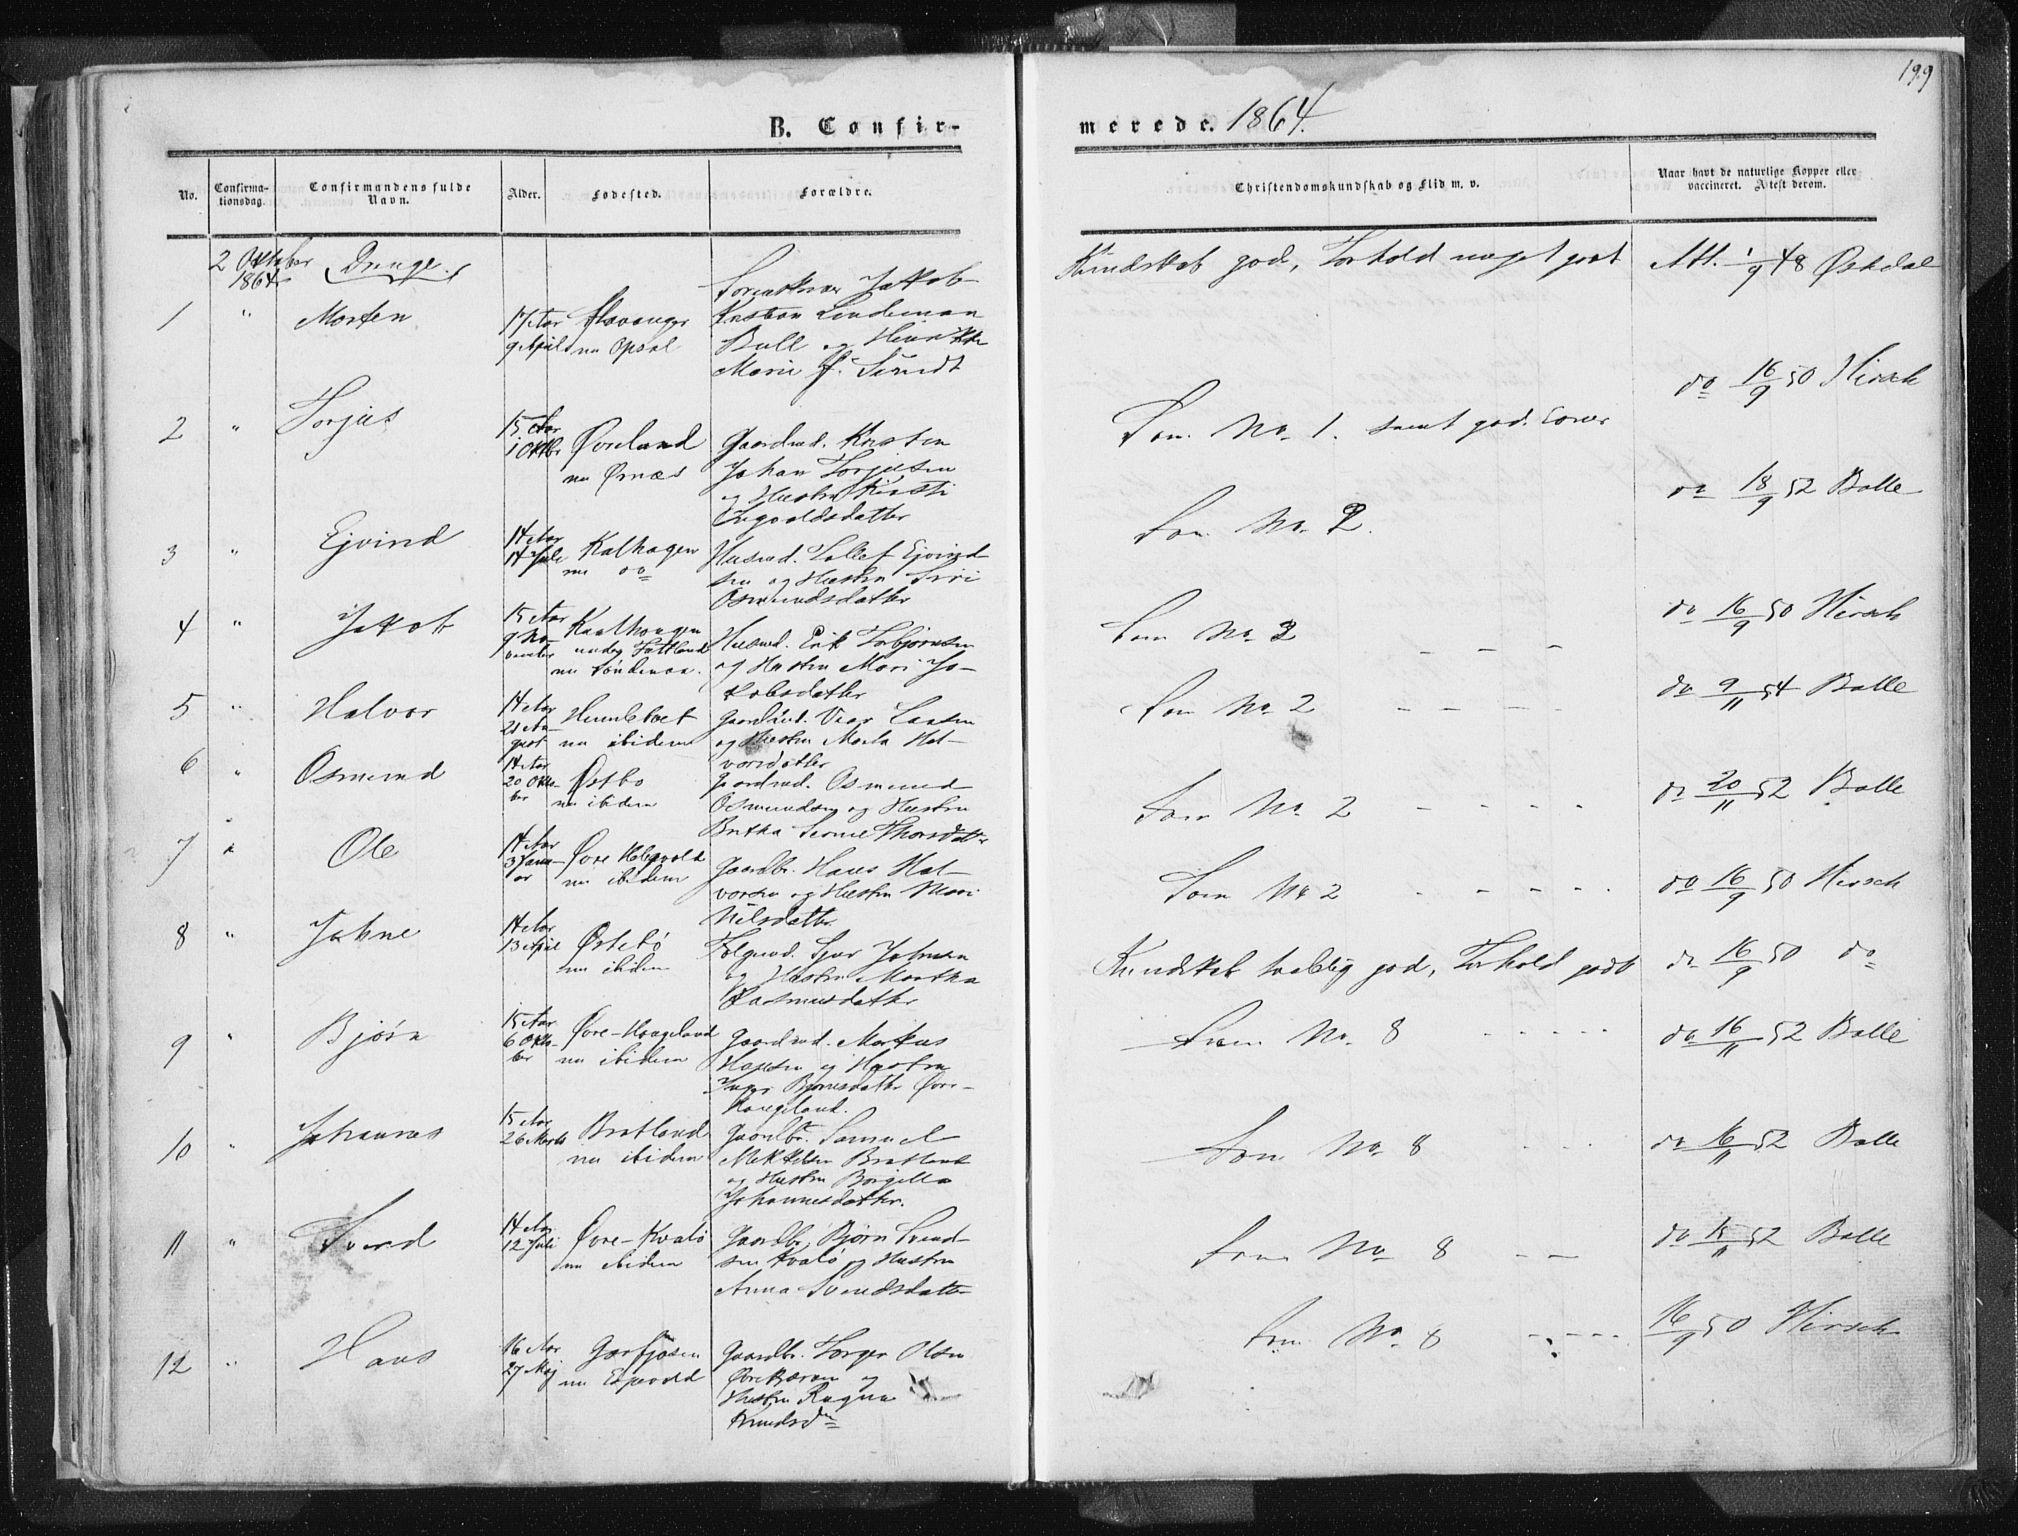 199
B. Confir-
merede. 1864.
No.
Confirma-
tionsdag.
Confirmandens fulde
Navn.
Alder.
Fødested.
Forældre.
Christendomskundskab og Flid m. v.
Naar havt de naturlige Kopper eller
vaccineret. Attest derom.
2 Oktober
1864
Drenge.
1
"
Morten
17 Aar
9 April
Stavanger
nu Opsal
Sorenskriver Jakob
Kristian Lindeman
Bull og Henrikke
Marie F. Sundt
Kundskab god, Forhold noget godt
Att. 1/9 48 Østdal
2
"
Torjus
15 Aar
1 Oktbr
Øveland
nu Ørnæs
Gaardmd. Kristen
Johan Torjusen
og Hustru Kirsti
Ingvaldsdatter
Som No. 1. samt god Evner
do 16/9 50 Hirsch
3
"
Ejvind
14 Aar
14 Juli
Kalhagen
nu do
Husmd. Tollef Ejvind-
sen og Hustru Siri
Osmundsdatter
Som No. 2.
do 18/9 52 Balle
4
"
Jakob
15 Aar
9 No-
vember
Kaalhaugen
under Fatland
nu Søndenaa.
Husmd. Erik Torbjørnsen
og Hustru Mari Ja-
kobsdatter
Som No. 2 - - -
do 16/9 50 Hirsch
5
"
Halvor
14 Aar
21 Au-
gust
Humletvet
nu ibidem
Gaardmd. Viar Larsen
og Hustru Marta Hal-
vorsdatter
Som No. 2 - - - -
do 9/11 54 Balle
6
"
Osmund
14 Aar
20 Okto-
ber
Østbø
nu ibidem
Gaardmd. Osmund
Osmundsen og Hustru
Britha Serine Thorsdatter
Som No. 2 - - - - -
do 20/11 52 Balle
7
"
Ole
14 Aar
3 Janu-
ar
Øvre
nu ibidem
Gaardbr. Hans Hal-
vorsen og Hustru Mari
Nilsdatter
Som No 2 - - - - -
do 16/9 50 Hirsch
8
"
Johne
14 Aar
13 April
Østebø
nu ibidem
Følgemd. Sjur Johnsen
og Hustru Martha
Rasmusdatter
Kundskab taalelig god, Forhold godt
do 16/9 50 do
9
"
Bjørn
15 Aar
6 Okto-
ber
Øvre-Haugeland
nu ibidem
Gaardmd. Markus
Hansen og Hustru
Inger Bjørnsdatter Øvre-
Haugeland.
Som No. 8 - - - - -
do 16/11 52 Balle
10
"
Johannes
15 Aar
26 Marts
Bratland
nu ibidem
Gaardbr. Samuel
Mikkelsen Bratland
og Hustru Borgilla
Johannesdatter.
Som No. 8 - - -
do 16/11 52 Balle
11
"
Svend
14 Aar
12 Juli
Øvre-Kvalø
nu ibidem
Gaardbr. Bjørn Svend-
sen Kvalø og Hustru
Anna Svendsdatter
Som No 8 - -
do 15/11 52 Balle
12
"
Hans
16 Aar
27 Maj
Garfjøsen
nu Espevold
Gaardbr. Torger Olsen
og
Hustru Ragna
Knudsdtr
Som No. 8 - - - -
16/9 50 Hirsch